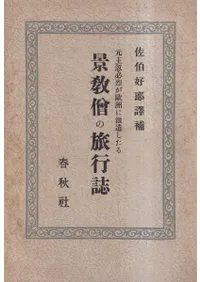 佐伯好郎譯補
元主忽必烈が歐洲に派遣したる
景教僧の旅行誌
春秋社